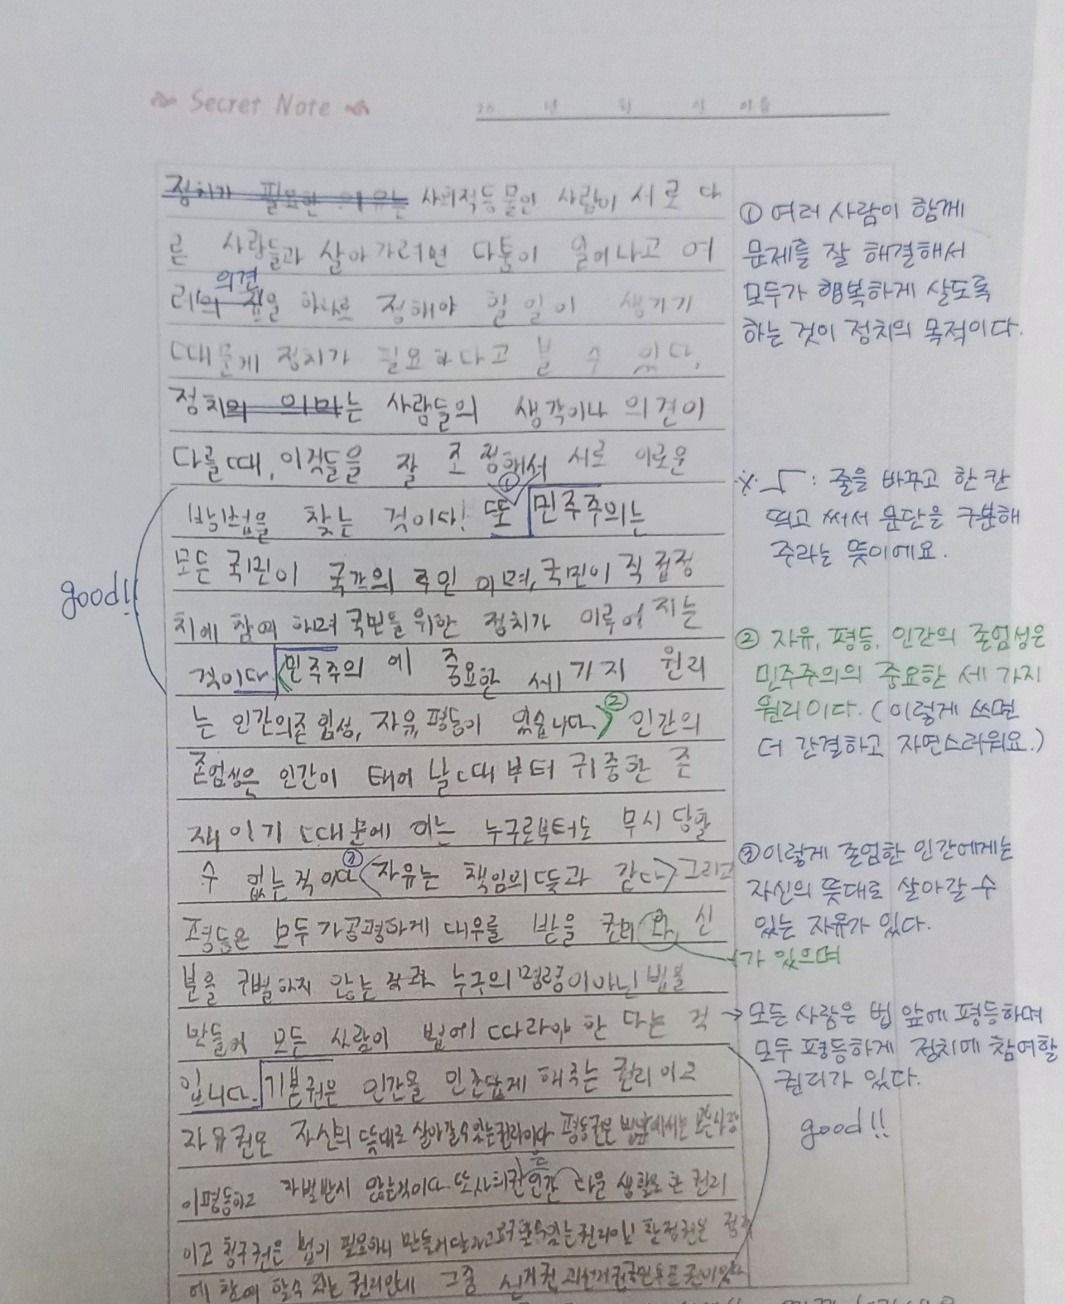 Secret Note
20 년 월 일 이름
정치가 필요한 이유는 사회적동물인 사람이 서로 다
른 사람들과 살아가려면 다툼이 일어나고 여
의견
러의 을 하나로 정해야 할 일이 생기기
때문에 정치가 필요하다고 볼 수 있다.
정치의 의미는 사람들의 생각이나 의견이
다를때, 이것들을 잘 조정해서 서로 이로운
①
방법을 찾는 것이다! 또 민주주의는
모든 국민이 국가의 주인 이며, 국민이 직접정
치에 참여 하며 국민을위한 정치가 이루어 지는
것이다 민주주의 에 중요한 세 가지 원리
②
는 인간의존엄성, 자유,평등이 있습니다 인간의
존엄성은 인간이 태어 날때부터 귀중한 존
재 이기 때문에 이는 누구로부터도 무시 당할
수 없는 것이다 ③ 자유는 책임의 뜻과 같다 그리고
평등은 모두가공평하게 대우를 받을 권리와, 신
분을 구별하지 않는 누구의 명령이아닌 법을
만들어 모든 사람이 법에 따라야 한 다는 것
입니다. 기본권은 인간을 인간답게 해주는 권리이고
자유권은 자신의 뜻대로 살아갈수있는권리이다 평등권은 법앞에서는 모든사람
이평등하고 차별받지 않는것이다 또사회권은 인간 다운 생활을 할 권리
이고 청구권은 법이 필요하니 만들어달라고 있는권리이고 참정권은 정치
에 참여 할수 있는 권리인데 그중 선거권 국민투표권이있다
good!!
① 여러 사람이 함께
문제를 잘 해결해서
모두가 행복하게 살도록
하는 것이 정치의 목적이다.
※ : 줄을 바꾸고 한 칸
띄고 써서 문단을 구분해
주라는 뜻이에요.
② 자유, 평등, 인간의 존엄성은
민주주의의 중요한 세 가지
원리이다. (이렇게 쓰면
더 간결하고 자연스러워요.)
③ 이렇게 존엄한 인간에게는
자신의 뜻대로 살아갈 수
있는 자유가 있다.
가 있으며
→ 모든 사람은 법 앞에 평등하며
모두 평등하게 정치에 참여할
권리가 있다.
good!!